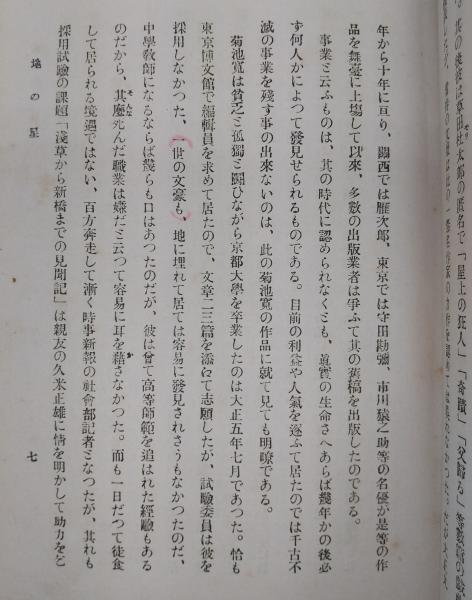 年から十年に亘り、關西では雁次郎、東京では守田勘彌、市川猿之助等の名優が是等の作
品を舞臺に上場して以來、多數の出版業者は爭ふて其の舊稿を出版したのである。
事業と云ふものは、其の時代に認められなくとも、眞實の生命さへあらば幾年かの後必
ず何人かによつて發見せられるものである。目前の利益や人氣を逐ふて居たのでは千古不
滅の事業を殘す事の出來ないのは、此の菊池寬の作品に就て見ても明瞭である。
菊池寬は貧乏と孤獨と鬪ひながら京都大學を卒業したのは大正五年七月であつた。恰も
東京博文館で編輯員を求めて居たので、文章二三篇を添ねて志願したが、試驗委員は彼を
採用しなかつた、(一世の文豪も)地に埋れて居ては容易に發見されさうもなかつたのだ、
中學敎師になるならば幾らも口はあつたのだが、彼は曾て高等師範を追はれた經驗もある
のだから、其麽死んだ職業は嫌だと云つて容易に耳を藉さなかつた。而も一日だつて徒食
して居られる境遇ではない、百方奔走して漸く時事新報の社會部記者となつたが、其れも
採用試驗の課題「淺草から新橋までの見聞記」は親友の久米正雄に情を明かして助力を乞
の星
七